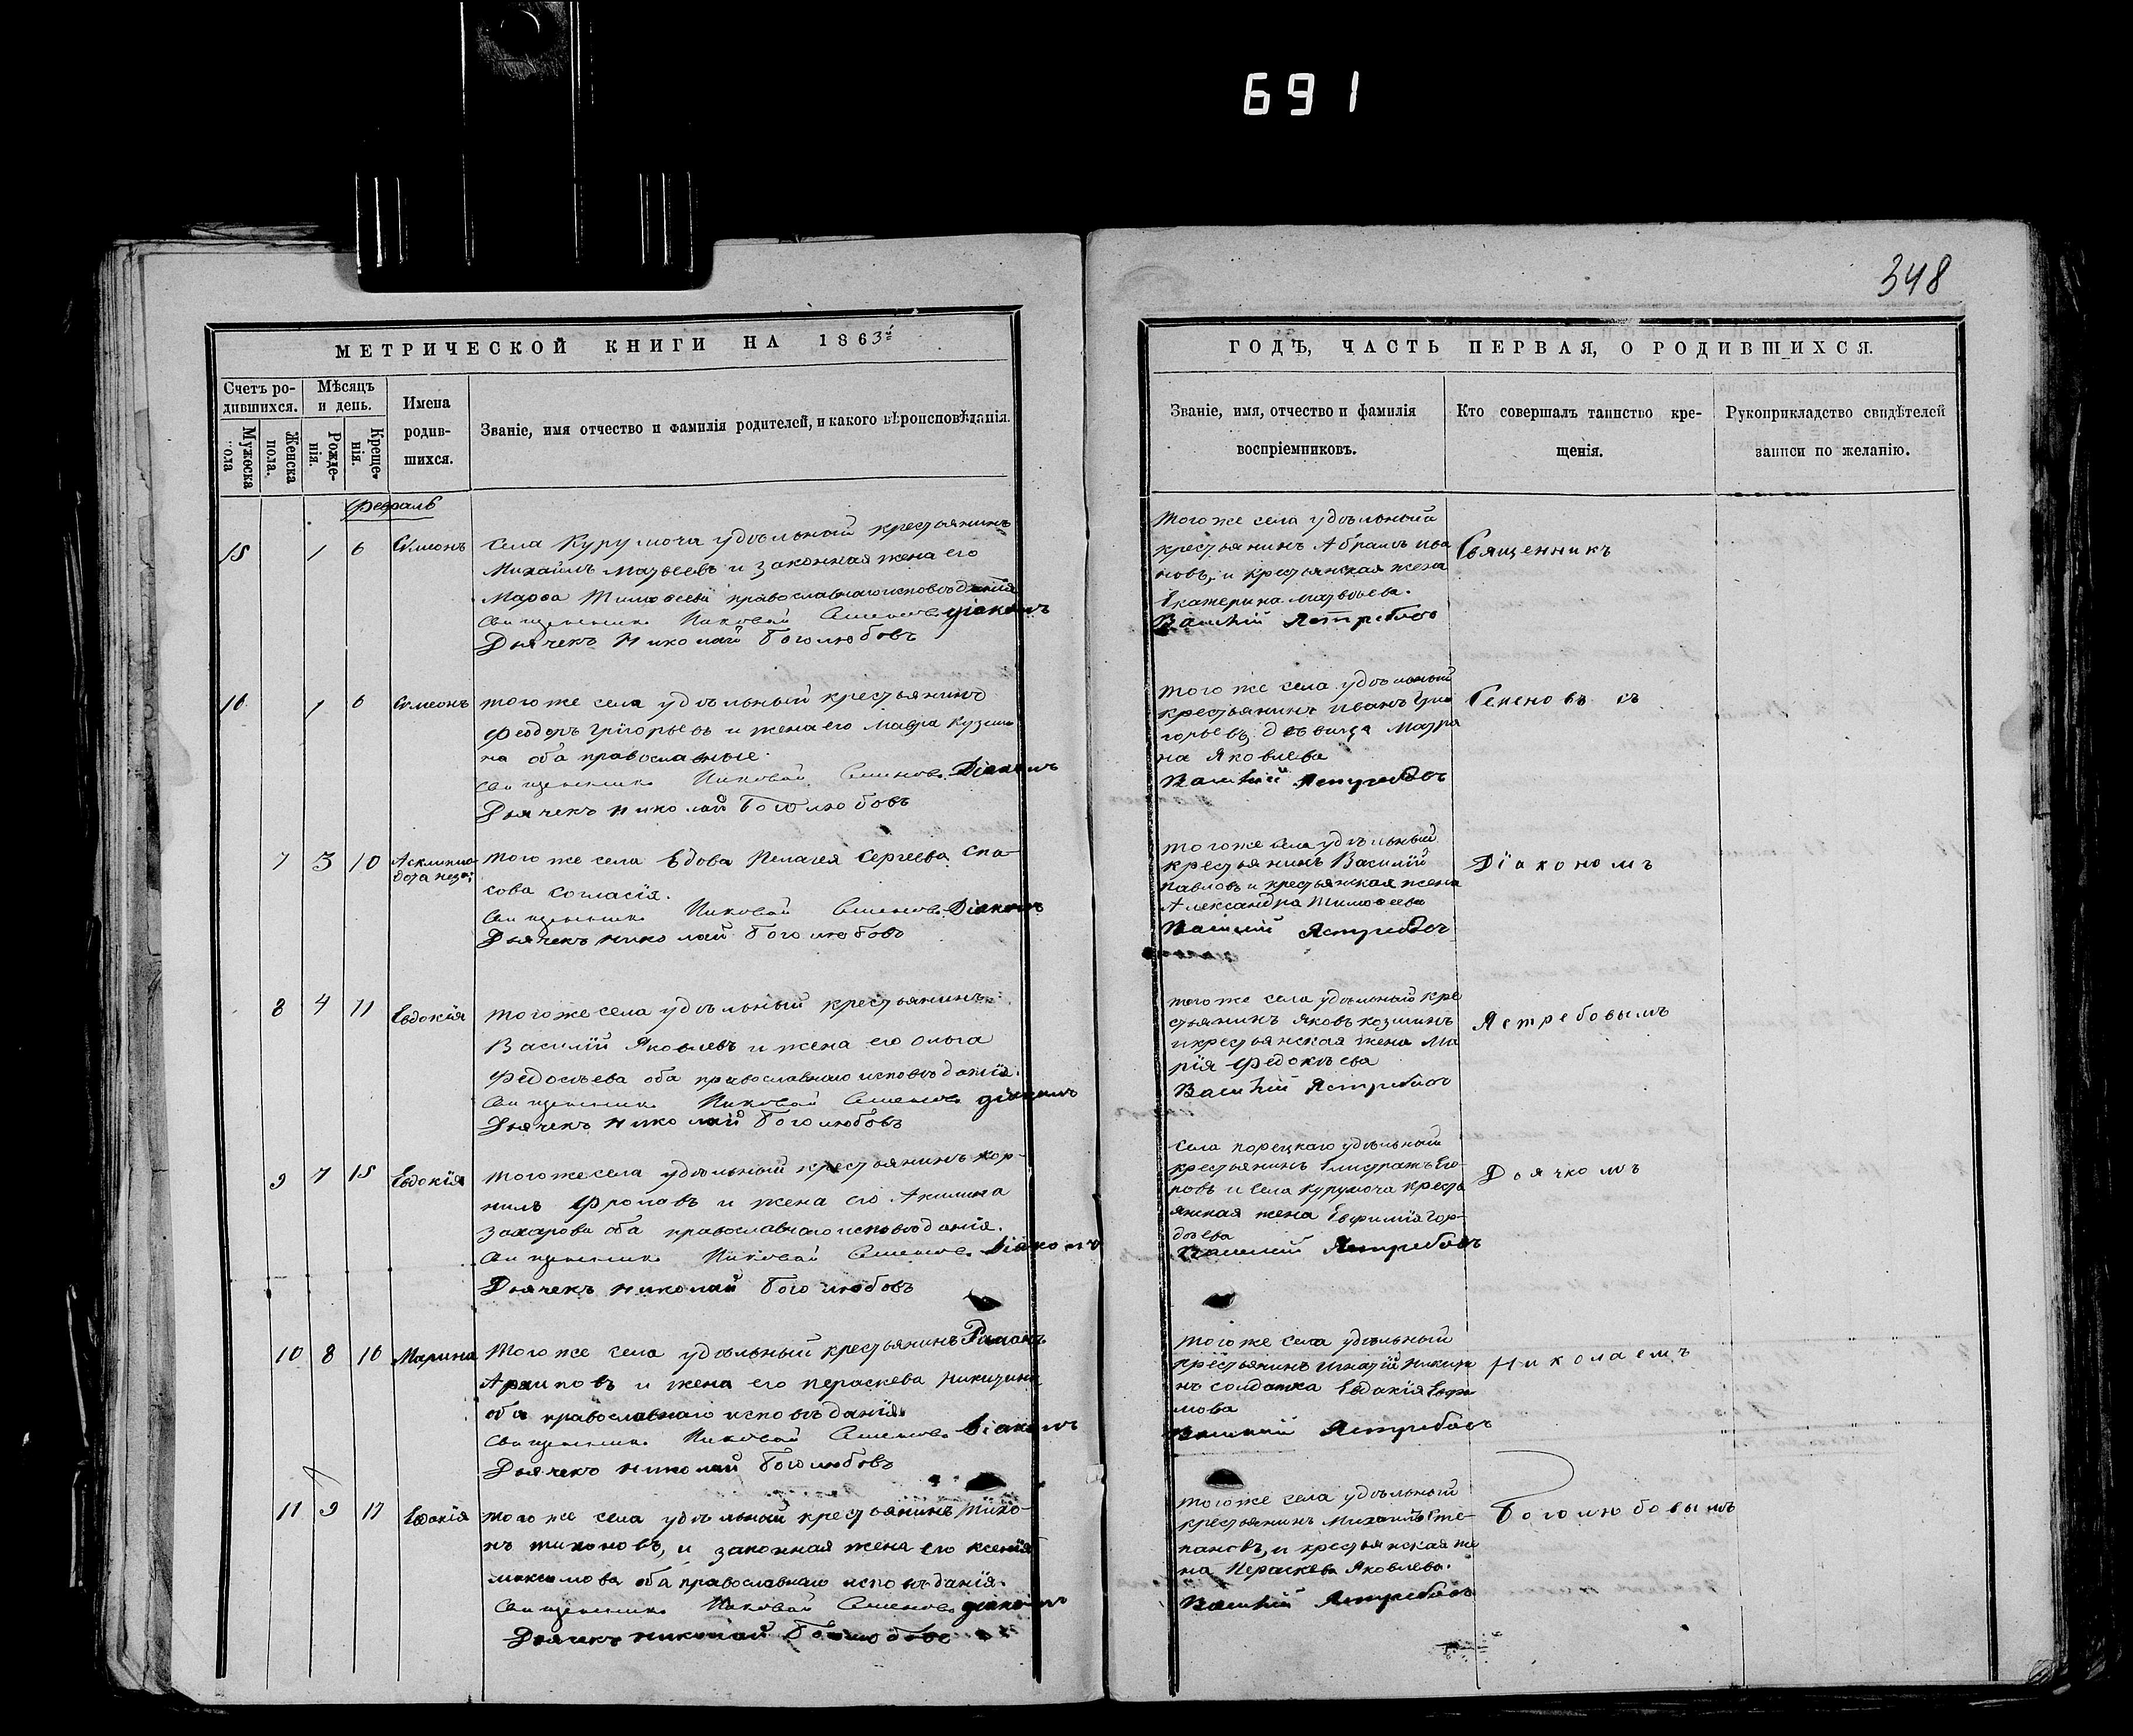 691
348
МЕТРИЧЕСКОЙ КНИГИ НА 1863й
Счетъ ро-
дившихся.
Мѣсяцъ
и день.
Имена
родив-
шихся.
Званіе, имя отчество и фамилія родителей, и какого вѣроисповѣданія.
Мужеска
пола
Женска
пола.
Рожде-
нія.
Креще-
нія.
Февраль
15 1 6 Симеонъ
Села Курумоча удѣльный крестьянинъ
Михаилъ Матвеевъ и законная жена его
Марѳа Тимоѳеева православнаго исповѣданія
Священникъ Семеновъ Діаконъ
Дьячекъ Николай Боголюбовъ
16 1 6 Симеонъ
того же села удѣльный крестьянинъ
Феодоръ Григорьевъ и жена его Мавра Кузми-
на оба православные.
Священникъ Семеновъ Діаконъ
Дьячекъ Николай Боголюбовъ
7 3 10
того же села вдова Пелагея Сергеева Спа-
сова согласія.
Священникъ Семеновъ Діаконъ
Дьячекъ Николай Боголюбовъ
8 4 11 Евдокія
того же села удѣльный крестьянинъ
Василій Яковлевъ и жена его Ольга
Федосѣева оба православнаго исповѣданія.
Священникъ Семеновъ Діаконъ
Дьячекъ Николай Боголюбовъ
9 7 15 Евдокія
того же села удѣльный крестьянинъ Кор-
нилъ Фроловъ и жена его Акилина
Захарова оба православнаго исповѣданія.
Священникъ Семеновъ Діаконъ
Дьячекъ Николай Боголюбовъ
10 8 16 Марина
Того же села удѣльный крестьянинъ Романъ
Архиповъ и жена его Пераскева Никитина
оба православнаго исповѣданія.
Священникъ Семеновъ Діаконъ
Дьячекъ Николай Боголюбовъ
11 9 17 Евдокія
того же села удѣльный крестьянинъ Тихо-
нъ Тихоновъ, и законная жена его Ксенія
Максимова оба православнаго исповѣданія.
Священникъ Семеновъ Діаконъ
Дьячекъ Николай Боголюбовъ
ГОДЪ, ЧАСТЬ ПЕРВАЯ, О РОДИВШИХСЯ.
Званіе, имя, отчество и фамилія
воспріемниковъ.
Кто совершалъ таинство кре-
щенія.
Рукоприкладство свидѣтелей
записи по желанію.
Того же села удѣльный
крестьянинъ Абрамъ Ива
новъ, и крестьянская жена
Екатерина Матвеева.
Василій Ястребовъ
Священникъ
того же села удѣльный
крестьянинъ Иванъ Гри
горьевъ, дѣвица Матро
на Яковлева
Василій Ястребовъ
Семеновъ съ
того же села удѣльный
крестьянинъ Василій
Павловъ и крестьянская жена
Александра Тимоѳеева
Василій Ястребовъ
Діакономъ
того же села удѣльный кре
стьянинъ Яковъ Козминъ
и крестьянская жена Ма
рія
Василій Ястребовъ
Ястребовымъ
Села Порецкаго удѣльный
крестьянинъ Елистратъ Его-
ровъ и села Курумоча кресть
янская жена Евфимія Гор-
дѣева
Василій Ястребовъ
Дьячкомъ
того же села удѣльный
крестьянинъ Игнатій Никити
нъ солдатка Евдокія
мова
Василій Ястребовъ
Николаемъ
того же села удѣльный
крестьянинъ Михаилъ Сте-
пановъ, и крестьянская же
на Пераскева Яковлева.
Василій Ястребовъ
Боголюбовымъ